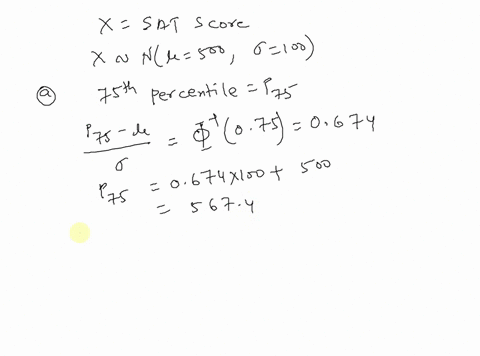 X = SAT Score
X ~ N(μ=500, σ=100)
(a) 75th percentile = P75
(P75 - μ)/σ = Φ^-1(0.75) = 0.674
P75 = 0.674×100 + 500
= 567.4